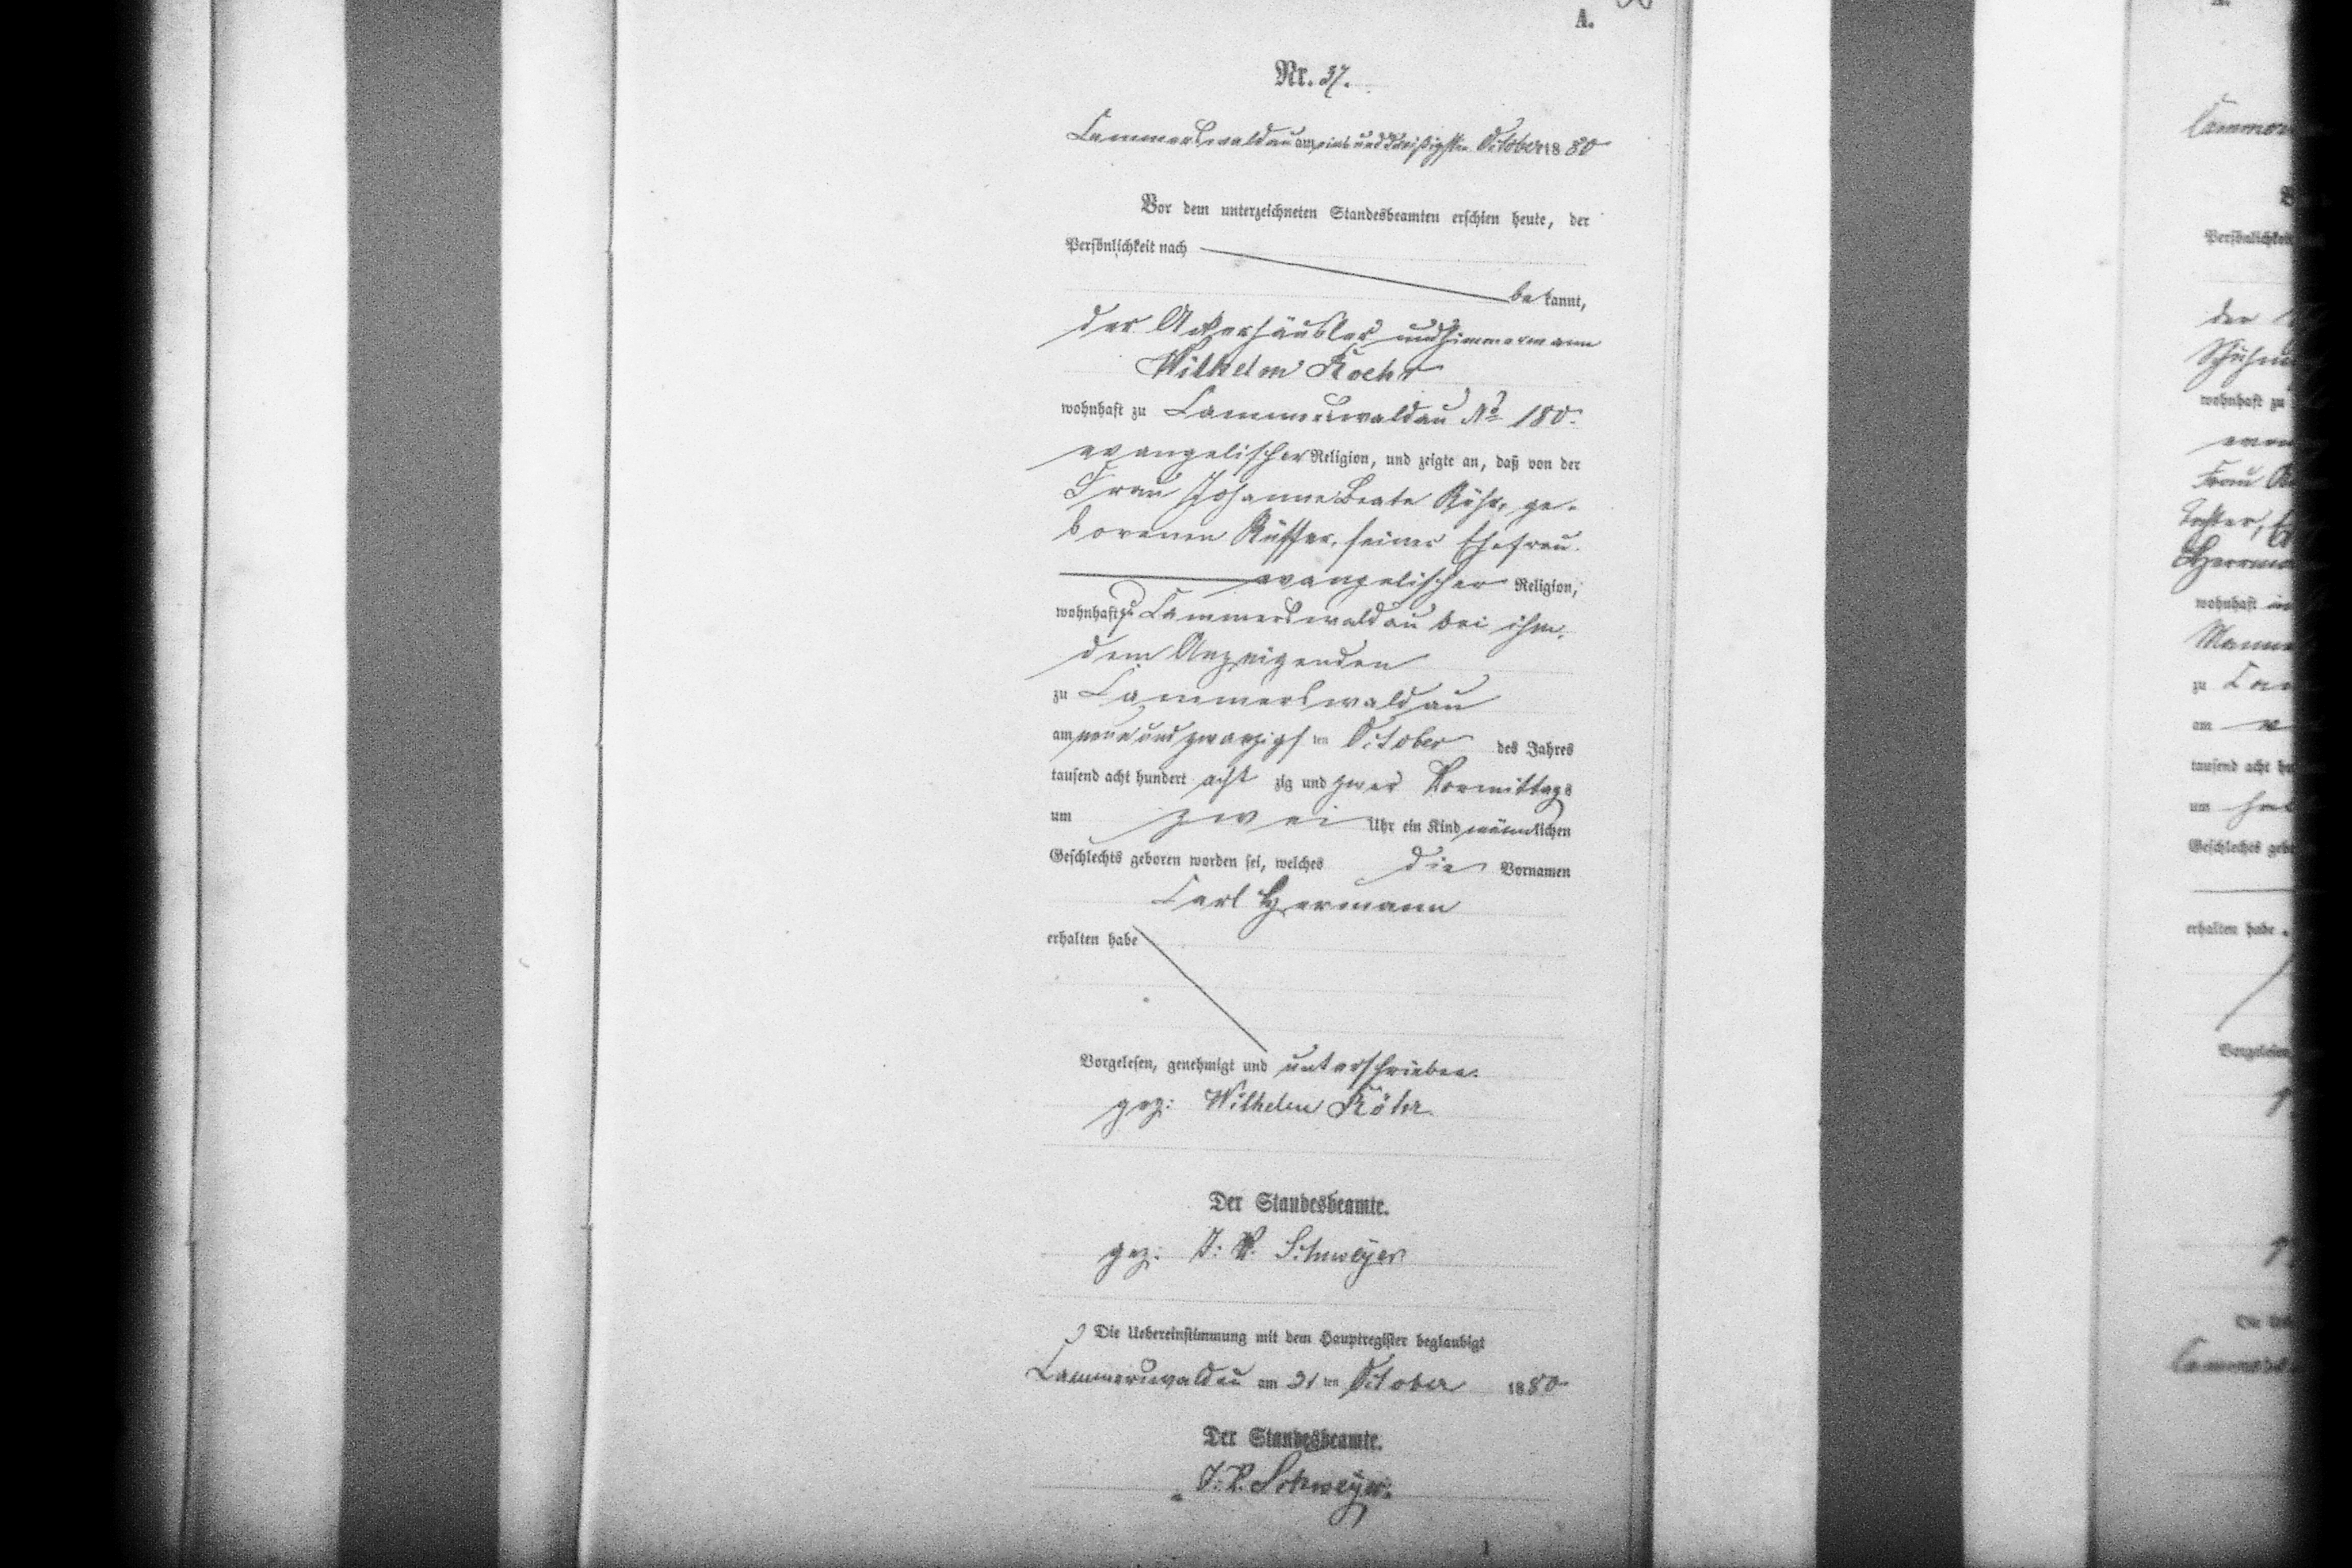 A.
Nr. 37.
Cammerswaldau am ein und dreißigsten October 1880
Vor dem unterzeichneten Standesbeamten erschien heute, der
Persönlichkeit nach
bekannt,
der Ackerhäusler und Zimmermann
Wilhelm Roehr
wohnhaft zu Cammerswaldau No 180.
evangelischer Religion, und zeigte an, daß von der
Frau Johanne Beate Röhr, ge-
borenen, seiner Ehefrau.
evangelischer Religion,
wohnhaft zu Cammerswaldau bei ihm,
dem Anzeigenden
zu Cammerswaldau
am neun und zwanzigsten October des Jahres
tausend acht hundert achtzig und zwar Vormittags
um zwei Uhr ein Kind männlichen
Geschlechts geboren worden sei, welches die Vornamen
Carl Hermann
erhalten habe
Vorgelesen, genehmigt und unterschrieben.
gez: Wilhelm Röhr.
Der Standesbeamte.
gez: J. V. Schweyer.
Die Uebereinstimmung mit dem Hauptregister beglaubigt
Cammerswaldau am 31ten October 1880
Der Standesbeamte.
J. V. Schweyer.
wohnhaft
Frau
zu
am
tausend acht
um
erhalten habe